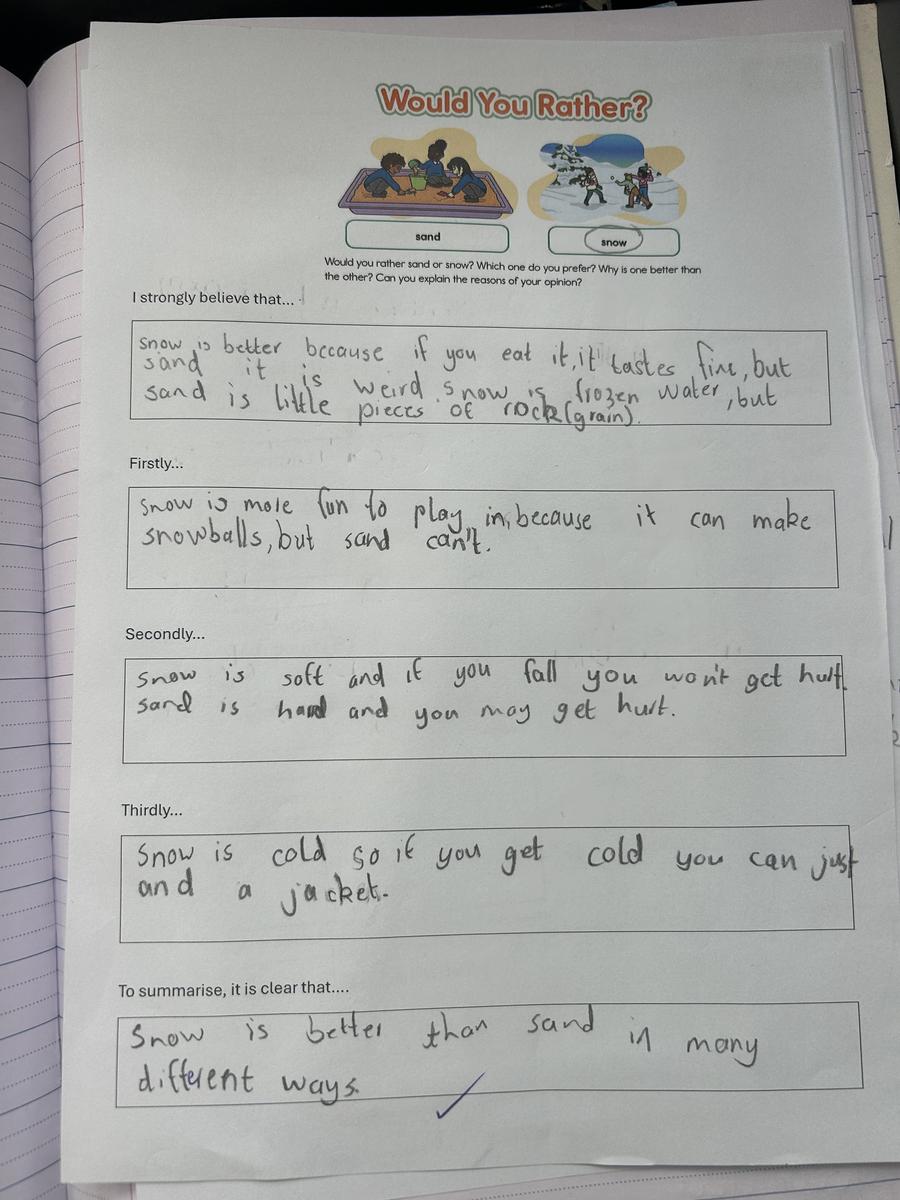 Would You Rather?
sand
snow
Would you rather sand or snow? Which one do you prefer? Why is one better than
the other? Can you explain the reasons of your opinion?
I strongly believe that...
snow is better because if you eat it, it tastes fine, but
sand it is weird. Snow is frozen water, but
sand is little pieces of rock (grain).
Firstly...
snow is more fun to play in, because it can make
snowballs, but sand can't.
Secondly...
snow is soft and if you fall you won't get hurt.
sand is hard and you may get hurt.
Thirdly...
Snow is cold so if you get cold you can just
and a jacket.
To summarise, it is clear that....
Snow is better than sand in many
different ways.